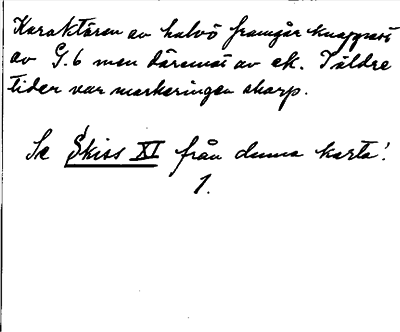 Karaktären av halvö framgår knappast
av G.6 men däremot av ek. I äldre
tider var markeringen skarp.
Se Skiss XI från denna karta!
1.